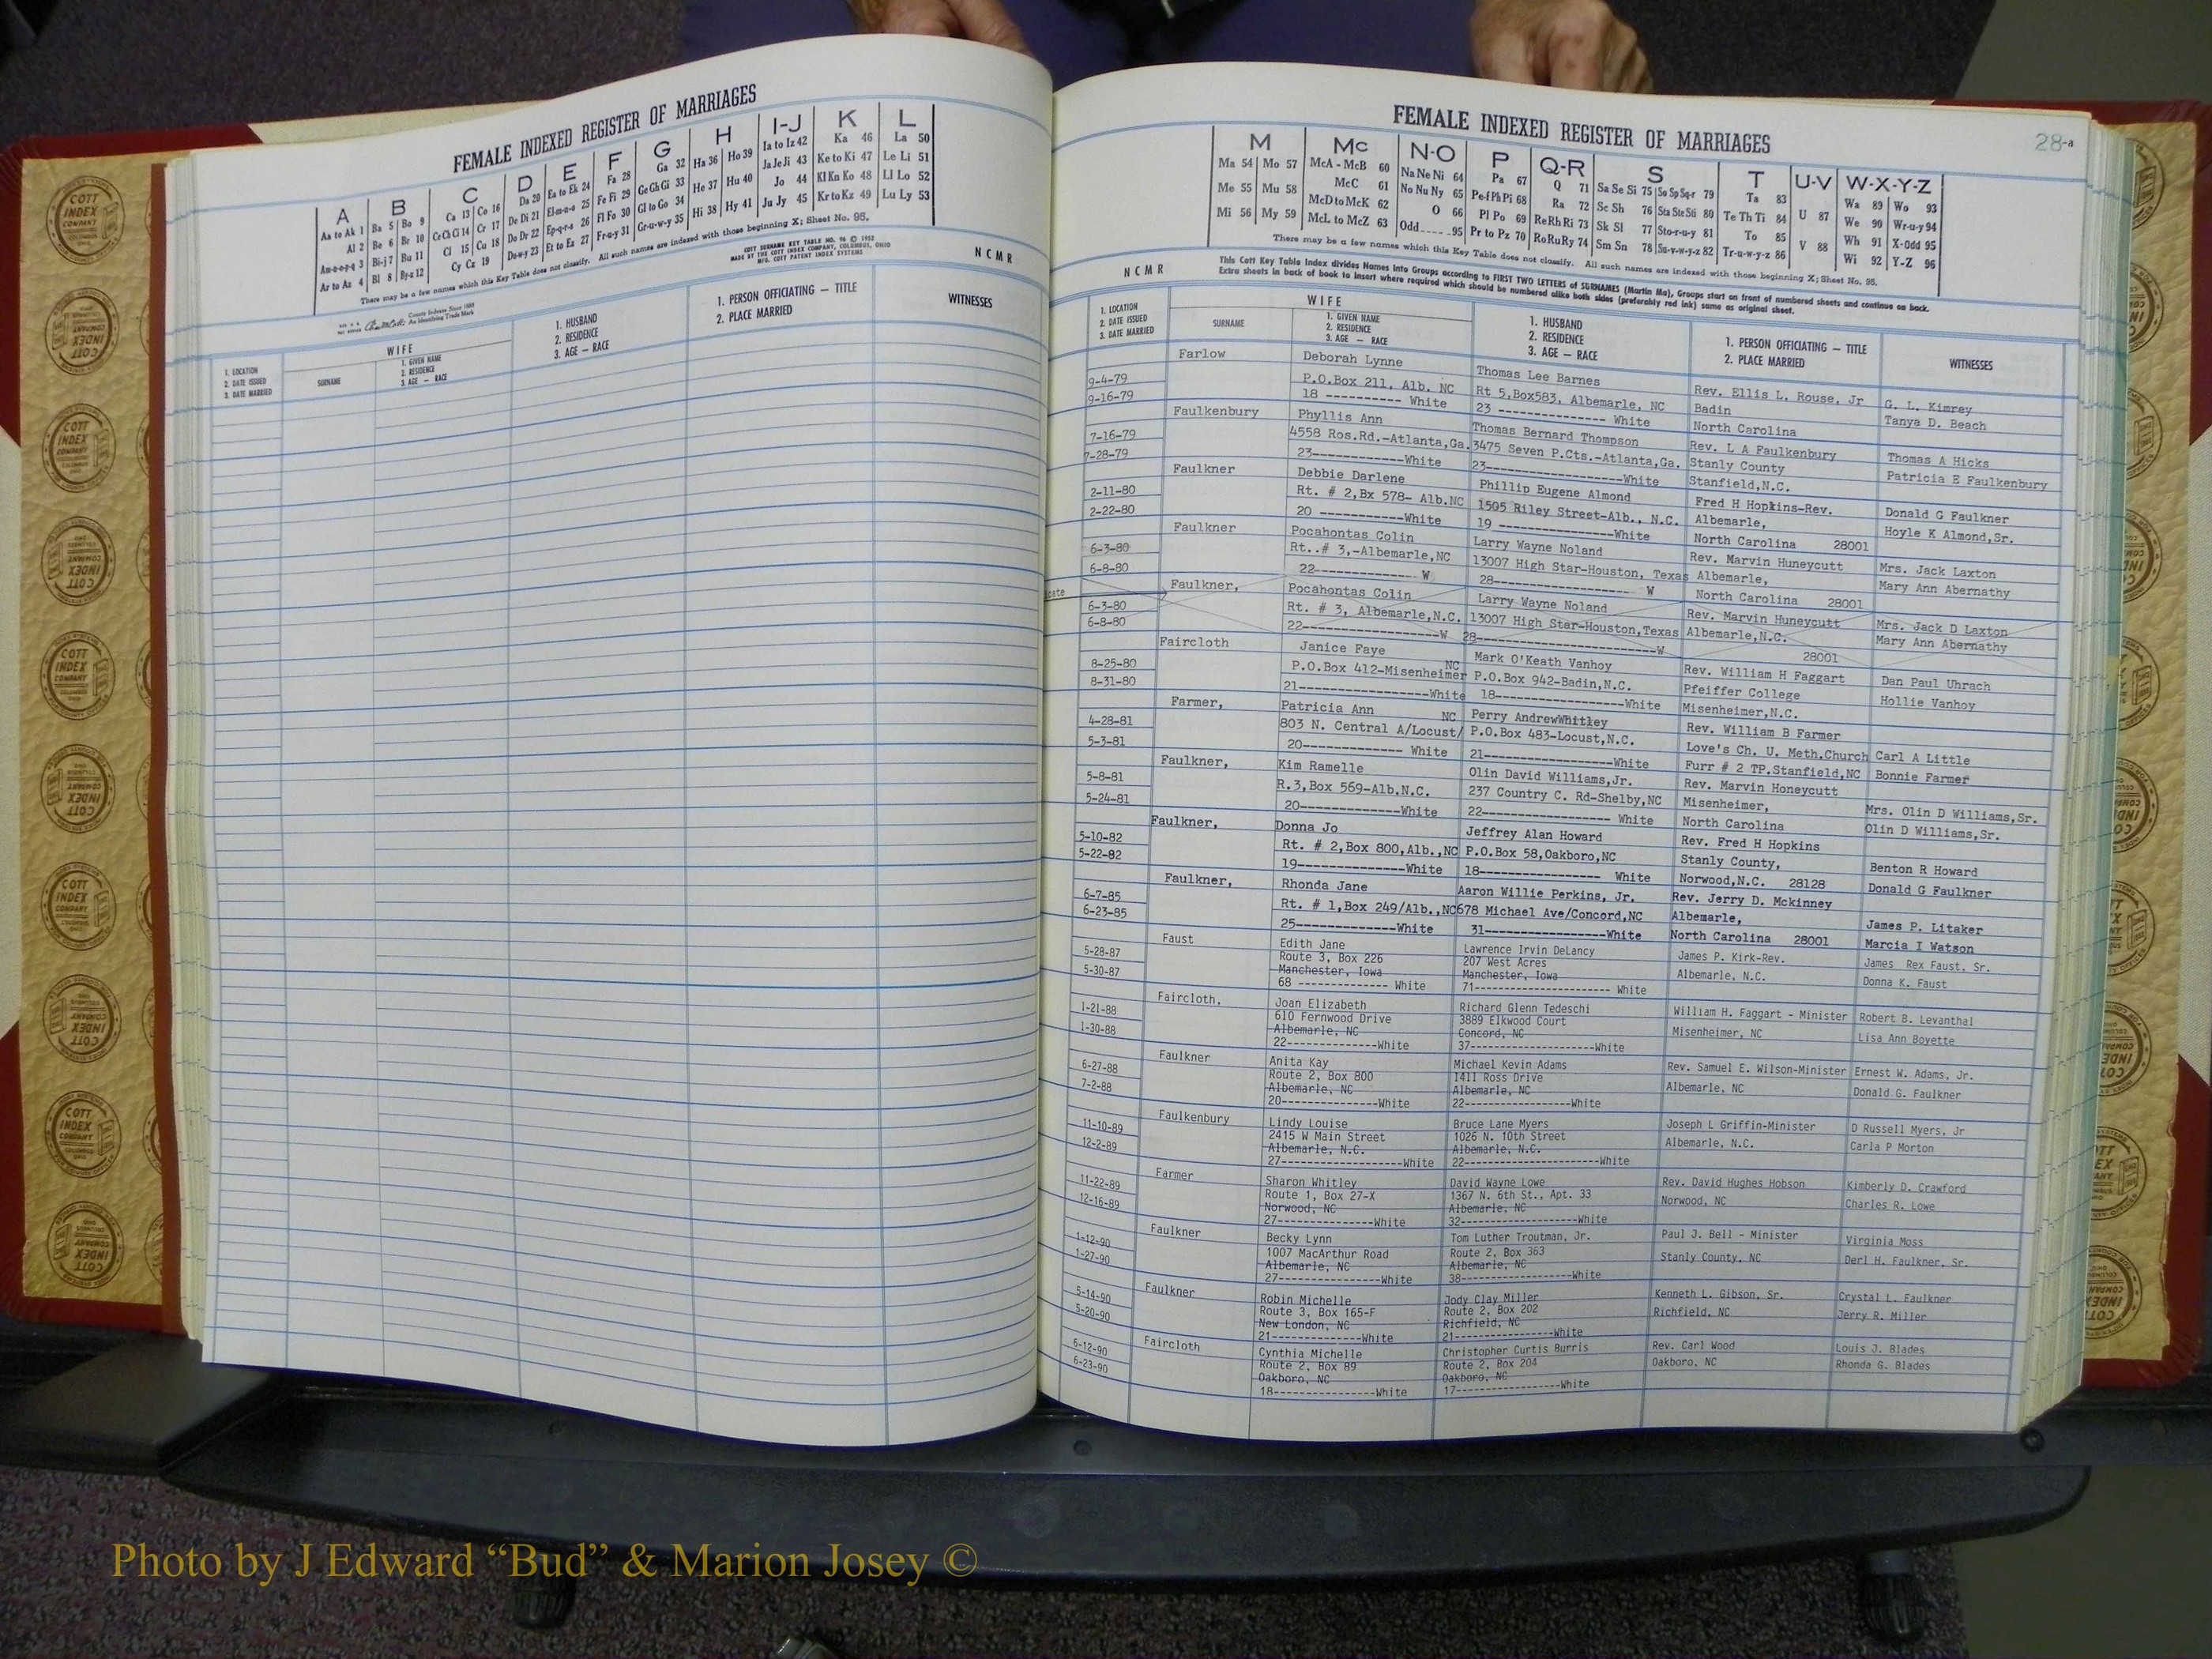 FEMALE INDEXED REGISTER OF MARRIAGES
A B C D E F G H I-J K L
Aa to Ak 1 Ba 5 Bo 9 Ca 13 Co 16 Da 20 Ea to Ek 24 Fa 28 Ga 32 Ha 36 Ho 39 Ia to Iz 42 Ka 46 La 50
Al 2 Be 6 Br 10 Ce Ch Ci 14 Cr 17 De Di 21 El-m-n-o 25 Fe Fi 29 Ge Gh Gi 33 He 37 Hu 40 Ja Je Ji 43 Ke to Ki 47 Le Li 51
Am-n-o-p-q 3 Bi-j 7 Bu 11 Cl 15 Cu 18 Do Dr 22 Ep-q-r-s 26 Fl Fo 30 Gl to Go 34 Hi 38 Hy 41 Jo 44 Kl Kn Ko 48 Ll Lo 52
Ar to Az 4 Bl 8 By-z 12 Cy Cz 19 Du-w-y 23 Et to Ez 27 Fr-u-y 31 Gr-u-w-y 35 Ju Jy 45 Kr to Kz 49 Lu Ly 53
There may be a few names which this Key Table does not classify. All such names are indexed with those beginning X; Sheet No. 95.
COTT SURNAME KEY TABLE NO. 96 © 1952
MADE BY THE COTT INDEX COMPANY, COLUMBUS, OHIO
MFG. COTT PATENT INDEX SYSTEMS
N C M R
County Indexes Since 1888
An Identifying Trade Mark
1. LOCATION
2. DATE ISSUED
3. DATE MARRIED
WIFE
SURNAME
1. GIVEN NAME
2. RESIDENCE
3. AGE — RACE
1. HUSBAND
2. RESIDENCE
3. AGE — RACE
1. PERSON OFFICIATING — TITLE
2. PLACE MARRIED
WITNESSES
FEMALE INDEXED REGISTER OF MARRIAGES
28-a
M Mc N-O P Q-R S T U-V W-X-Y-Z
Ma 54 Mo 57 McA - McB 60 Na Ne Ni 64 Pa 67 Q 71 Sa Se Si 75 So Sp Sq-r 79 Ta 83 U 87 Wa 89 Wo 93
Me 55 Mu 58 McC 61 No Nu Ny 65 Pe-f Ph Pi 68 Ra 72 Sc Sh 76 Sta Ste Sti 80 Te Th Ti 84 V 88 We 90 Wr-u-y 94
Mi 56 My 59 McD to McK 62 O 66 Pl Po 69 Re Rh Ri 73 Sk Sl 77 Sto-r-u-y 81 To 85 Wh 91 X-Odd 95
McL to McZ 63 Odd 95 Pr to Pz 70 Ro Ru Ry 74 Sm Sn 78 Su-v-w-y-z 82 Tr-u-w-y-z 86 Wi 92 Y-Z 96
There may be a few names which this Key Table does not classify. All such names are indexed with those beginning X; Sheet No. 95.
N C M R
This Cott Key Table Index divides Names into Groups according to FIRST TWO LETTERS of SURNAMES (Martin Ma), Groups start on front of numbered sheets and continue on back.
Extra sheets in back of book to insert where required which should be numbered alike both sides (preferably red ink) same as original sheet.
1. LOCATION
2. DATE ISSUED
3. DATE MARRIED
WIFE
SURNAME
1. GIVEN NAME
2. RESIDENCE
3. AGE — RACE
1. HUSBAND
2. RESIDENCE
3. AGE — RACE
1. PERSON OFFICIATING — TITLE
2. PLACE MARRIED
WITNESSES
Farlow Deborah Lynne Thomas Lee Barnes Rev. Ellis L. Rouse, Jr G. L. Kimrey
9-4-79 P.O.Box 211, Alb. NC Rt 5,Box583, Albemarle, NC Badin Tanya D. Beach
9-16-79 18 ---------- White 23 -------------- White North Carolina
Faulkenbury Phyllis Ann Thomas Bernard Thompson Rev. L A Faulkenbury Thomas A Hicks
7-16-79 4558 Ros.Rd.-Atlanta,Ga. 3475 Seven P.Cts.-Atlanta,Ga. Stanly County Patricia E Faulkenbury
7-28-79 23-------------White 23--------------------White Stanfield,N.C.
Faulkner Debbie Darlene Phillip Eugene Almond Fred H Hopkins-Rev. Donald G Faulkner
2-11-80 Rt. # 2,Bx 578- Alb.NC 1505 Riley Street-Alb., N.C. Albemarle, Hoyle K Almond,Sr.
2-22-80 20 ------------White 19 ----------------White North Carolina 28001
Faulkner Pocahontas Colin Larry Wayne Noland Rev. Marvin Huneycutt Mrs. Jack Laxton
6-3-80 Rt..# 3,-Albemarle,NC 13007 High Star-Houston, Texas Albemarle, Mary Ann Abernathy
6-8-80 22-------------- W 28--------------------- W North Carolina 28001
cate
Faulkner, Pocahontas Colin Larry Wayne Noland Rev. Marvin Huneycutt Mrs. Jack D Laxton
6-3-80 Rt. # 3, Albemarle,N.C. 13007 High Star-Houston,Texas Albemarle,N.C. Mary Ann Abernathy
6-8-80 22--------------------W 28---------------------------W 28001
Faircloth Janice Faye Mark O'Keath Vanhoy Rev. William H Faggart Dan Paul Uhrach
8-25-80 P.O.Box 412-Misenheimer NC P.O.Box 942-Badin,N.C. Pfeiffer College Hollie Vanhoy
8-31-80 21-----------------White 18-----------------White Misenheimer,N.C.
Farmer, Patricia Ann Perry AndrewWhitley Rev. William B Farmer
4-28-81 803 N. Central A/Locust/ NC P.O.Box 483-Locust,N.C. Love's Ch. U. Meth.Church Carl A Little
5-3-81 20-------------- White 21------------------White Furr # 2 TP.Stanfield,NC Bonnie Farmer
Faulkner, Kim Ramelle Olin David Williams,Jr. Rev. Marvin Honeycutt
5-8-81 R.3,Box 569-Alb.N.C. 237 Country C. Rd-Shelby,NC Misenheimer, Mrs. Olin D Williams,Sr.
5-24-81 20--------------White 22------------------ White North Carolina Olin D Williams,Sr.
Faulkner, Donna Jo Jeffrey Alan Howard Rev. Fred H Hopkins
5-10-82 Rt. # 2,Box 800,Alb.,NC P.O.Box 58,Oakboro,NC Stanly County, Benton R Howard
5-22-82 19---------------White 18----------------- White Norwood,N.C. 28128 Donald G Faulkner
Faulkner, Rhonda Jane Aaron Willie Perkins, Jr. Rev. Jerry D. Mckinney
6-7-85 Rt. # 1,Box 249/Alb.,NC 678 Michael Ave/Concord,NC Albemarle, James P. Litaker
6-23-85 25-------------White 31-----------------White North Carolina 28001 Marcia I Watson
Faust Edith Jane Lawrence Irvin DeLancy James P. Kirk-Rev. James Rex Faust, Sr.
5-28-87 Route 3, Box 226 207 West Acres
5-30-87 Manchester, Iowa Manchester, Iowa Albemarle, N.C. Donna K. Faust
68 -------------- White 71---------------------- White
Faircloth, Joan Elizabeth Richard Glenn Tedeschi William H. Faggart - Minister Robert B. Levanthal
1-21-88 610 Fernwood Drive 3889 Elkwood Court
1-30-88 Albemarle, NC Concord, NC Misenheimer, NC Lisa Ann Boyette
22---------------White 37--------------------White
Faulkner Anita Kay Michael Kevin Adams Rev. Samuel E. Wilson-Minister Ernest W. Adams, Jr.
6-27-88 Route 2, Box 800 1411 Ross Drive
7-2-88 Albemarle, NC Albemarle, NC Albemarle, NC Donald G. Faulkner
20----------------White 22------------------White
Faulkenbury Lindy Louise Bruce Lane Myers Joseph L Griffin-Minister D Russell Myers, Jr
11-10-89 2415 W Main Street 1026 N. 10th Street
12-2-89 Albemarle, N.C. Albemarle, N.C. Albemarle, N.C. Carla P Morton
27--------------------White 22-----------------------White
Farmer Sharon Whitley David Wayne Lowe Rev. David Hughes Hobson Kimberly D. Crawford
11-22-89 Route 1, Box 27-X 1367 N. 6th St., Apt. 33
12-16-89 Norwood, NC Albemarle, NC Norwood, NC Charles R. Lowe
27----------------White 32-------------------White
Faulkner Becky Lynn Tom Luther Troutman, Jr. Paul J. Bell - Minister Virginia Moss
1-12-90 1007 MacArthur Road Route 2, Box 363
1-27-90 Albemarle, NC Albemarle, NC Stanly County, NC Derl H. Faulkner, Sr.
27-----------------White 38------------------White
Faulkner Robin Michelle Jody Clay Miller Kenneth L. Gibson, Sr. Crystal L. Faulkner
5-14-90 Route 3, Box 165-F Route 2, Box 202
5-20-90 New London, NC Richfield, NC Richfield, NC Jerry R. Miller
21---------------White 21----------------White
Faircloth Cynthia Michelle Christopher Curtis Burris Rev. Carl Wood Louis J. Blades
6-12-90 Route 2, Box 89 Route 2, Box 204
6-23-90 Oakboro, NC Oakboro, NC Oakboro, NC Rhonda G. Blades
18------------------White 17------------------White
COTT
INDEX
COMPANY
Photo by J Edward “Bud” & Marion Josey ©